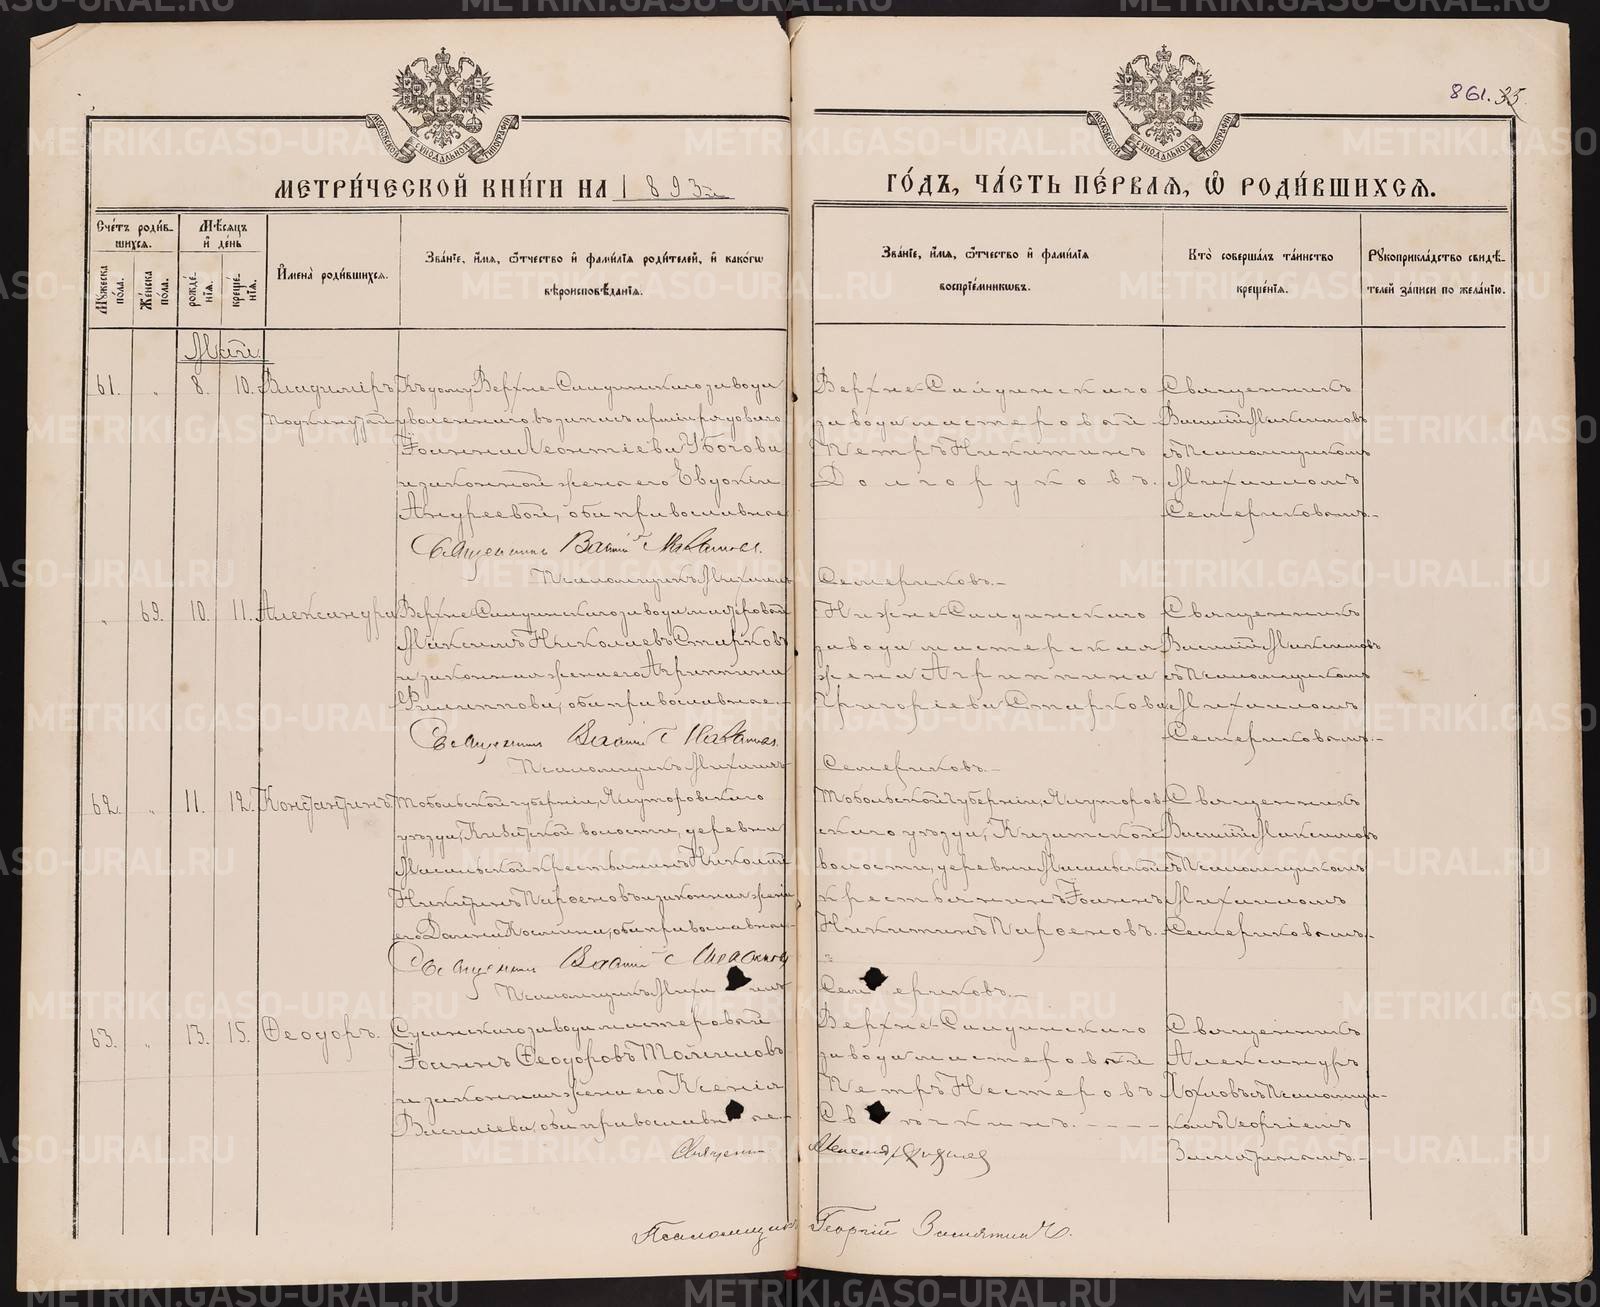 861. 35
МОСКОВСКОЙ СѴНОДАЛЬНОЙ ТИПОГРАФІИ
МОСКОВСКОЙ СѴНОДАЛЬНОЙ ТИПОГРАФІИ
МЕТРИ́ЧЕСКОЙ КНИ́ГИ НА 1893й
ГО́ДЪ, ЧА́СТЬ ПЕ́РВАЯ, Ѡ҆ РОДИ́ВШИХСЯ.
Сче́тъ роди́в-
шихся.
Му́жеска по́ла.
Же́нска по́ла.
Мѣ́сяцъ
и҆ де́нь
рожде́-
нія.
креще́-
нія.
И҆мена̀ роди́вшихся.
Зва́ніе, и҆́мя, ѻ҆́тчество и҆ фами́лія роди́телей, и҆ како́гѡ
вѣроисповѣ́данія.
Зва́ніе, и҆́мя, ѻ҆́тчество и҆ фами́лія
воспріе́мникѡвъ.
Кто̀ соверша́лъ та́инство
креще́нія.
Рꙋкоприкла́дство свидѣ́-
телей за́писи по жела́нію.
Май.
61. " 8. 10. Владиміръ
подкинутый
Къ дому Верхне-Салдинскаго завода
уволеннаго въ запасъ арміи рядоваго
Іоанна Леонтіева Уботова
и законной жены его Евдокіи
Андреевой, оба православные
Священникъ Василій Максимовъ.
Псаломщикъ Михаилъ Семериковъ.
Верхне-Салдинскаго
завода мастеровой
Петръ Никитинъ
Долгоруковъ.
Священникъ
Василій Максимовъ
съ Псаломщикомъ
Михаиломъ
Семериковымъ.
" 69. 10. 11. Александра
Верхне-Салдинскаго завода мастеровой
Максимъ Николаевъ Старковъ
и законная жена его Агриппина
Филиппова, оба православные.
Священникъ Василій Максимовъ.
Псаломщикъ Михаилъ Семериковъ.
Нижне-Салдинскаго
завода мастерская
жена Агриппина
Григоріева Старкова
Священникъ
Василій Максимовъ
съ Псаломщикомъ
Михаиломъ
Семериковымъ.
62. " 11. 12. Константинъ
Тобольской губерніи, Ялуторовскаго
уѣзда, Кизатской волости, деревни
крестьянинъ Николай
Никитинъ Парѳеновъ и законная жена
его Косьмина, оба православные
Священникъ Василій Максимовъ
Псаломщикъ Михаилъ Семериковъ.
Тобольской губерніи, Ялуторов-
скаго уѣзда, Кизатской
волости, деревни
крестьянинъ Іоаннъ
Никитинъ Парѳеновъ.
Священникъ
Василій Максимовъ
съ Псаломщикомъ
Михаиломъ
Семериковымъ.
63. " 13. 15. Ѳеодоръ.
Сусанскаго завода мастеровый
Іоаннъ Ѳеодоровъ Томиловъ
и законная жена его Ксенія
Василіева, оба православные.
Верхне-Салдинскаго
завода мастеровый
Петръ Нестеровъ
Священникъ
Александръ
Хохловъ съ Псаломщи-
комъ Георгіемъ
Замятинымъ.
Священникъ Александръ Хохловъ
Псаломщикъ Георгій Замятинъ.
METRIKI.GASO-URAL.RU